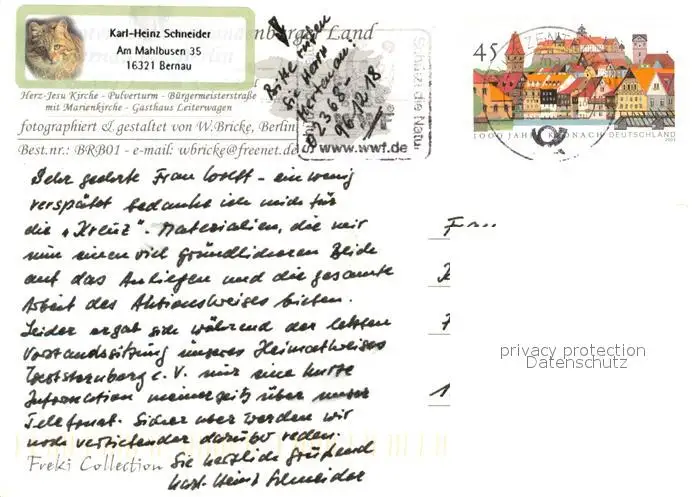 Karl-Heinz Schneider
Am Mahlbusen 35
16321 Bernau
Land
Herz-Jesu Kirche - Pulverturm - Bürgermeisterstraße
mit Marienkirche - Gasthaus Leiterwagen
fotographiert & gestaltet von W.Bricke, Berlin
Best.nr.: BRB01 - e-mail: wbricke@freenet.de
Bitte
Schützt die Natur
www.wwf.de
45
1000 JAHRE KRONACH DEUTSCHLAND
Sehr geehrte Frau Wolff - ein wenig
verspätet bedanke ich mich für
die „Kreuz“-Materialien, die mir
nun einen viel gründlicheren Blick
auf das Anliegen und die gesamte
Arbeit des Aktionskreises bieten.
Leider ergab sich während der letzten
Vorstandssitzung unseres Heimatkreises
Weststernberg e.V. nur eine kurze
Information meinerseits über unser
Telefonat. Sicher aber werden wir
noch vertiefender darüber reden.
Sie herzlich grüßend
Karl-Heinz Schneider
Freki Collection
privacy protection
Datenschutz